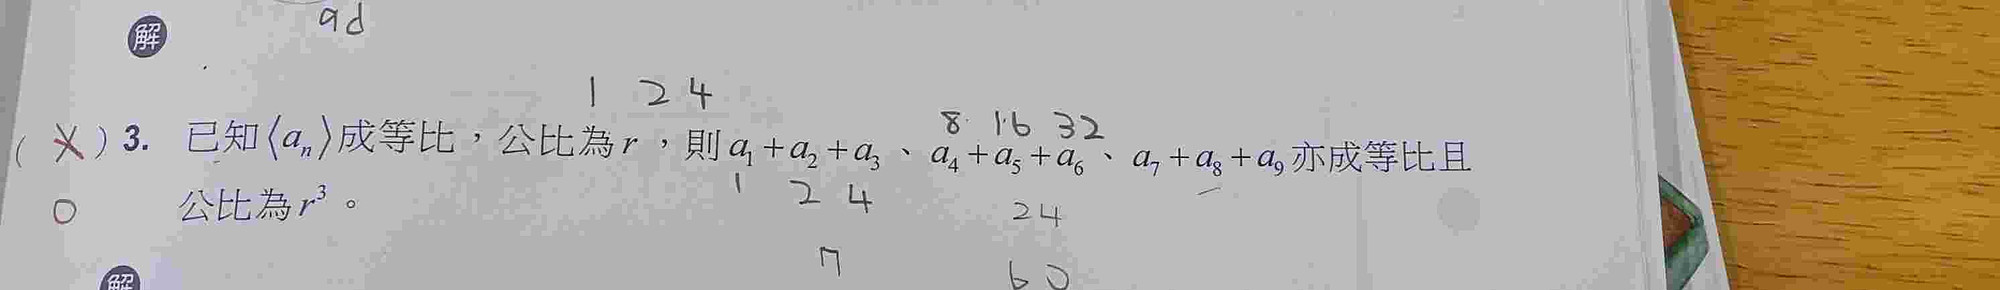 ad
解
1 2 4
8 16 32
( X ) 3. 已知⟨aₙ⟩成等比，公比為 r ，則 a₁+a₂+a₃、a₄+a₅+a₆、a₇+a₈+a₉亦成等比且
1 2 4
O 公比為 r³。
24
7 60
解